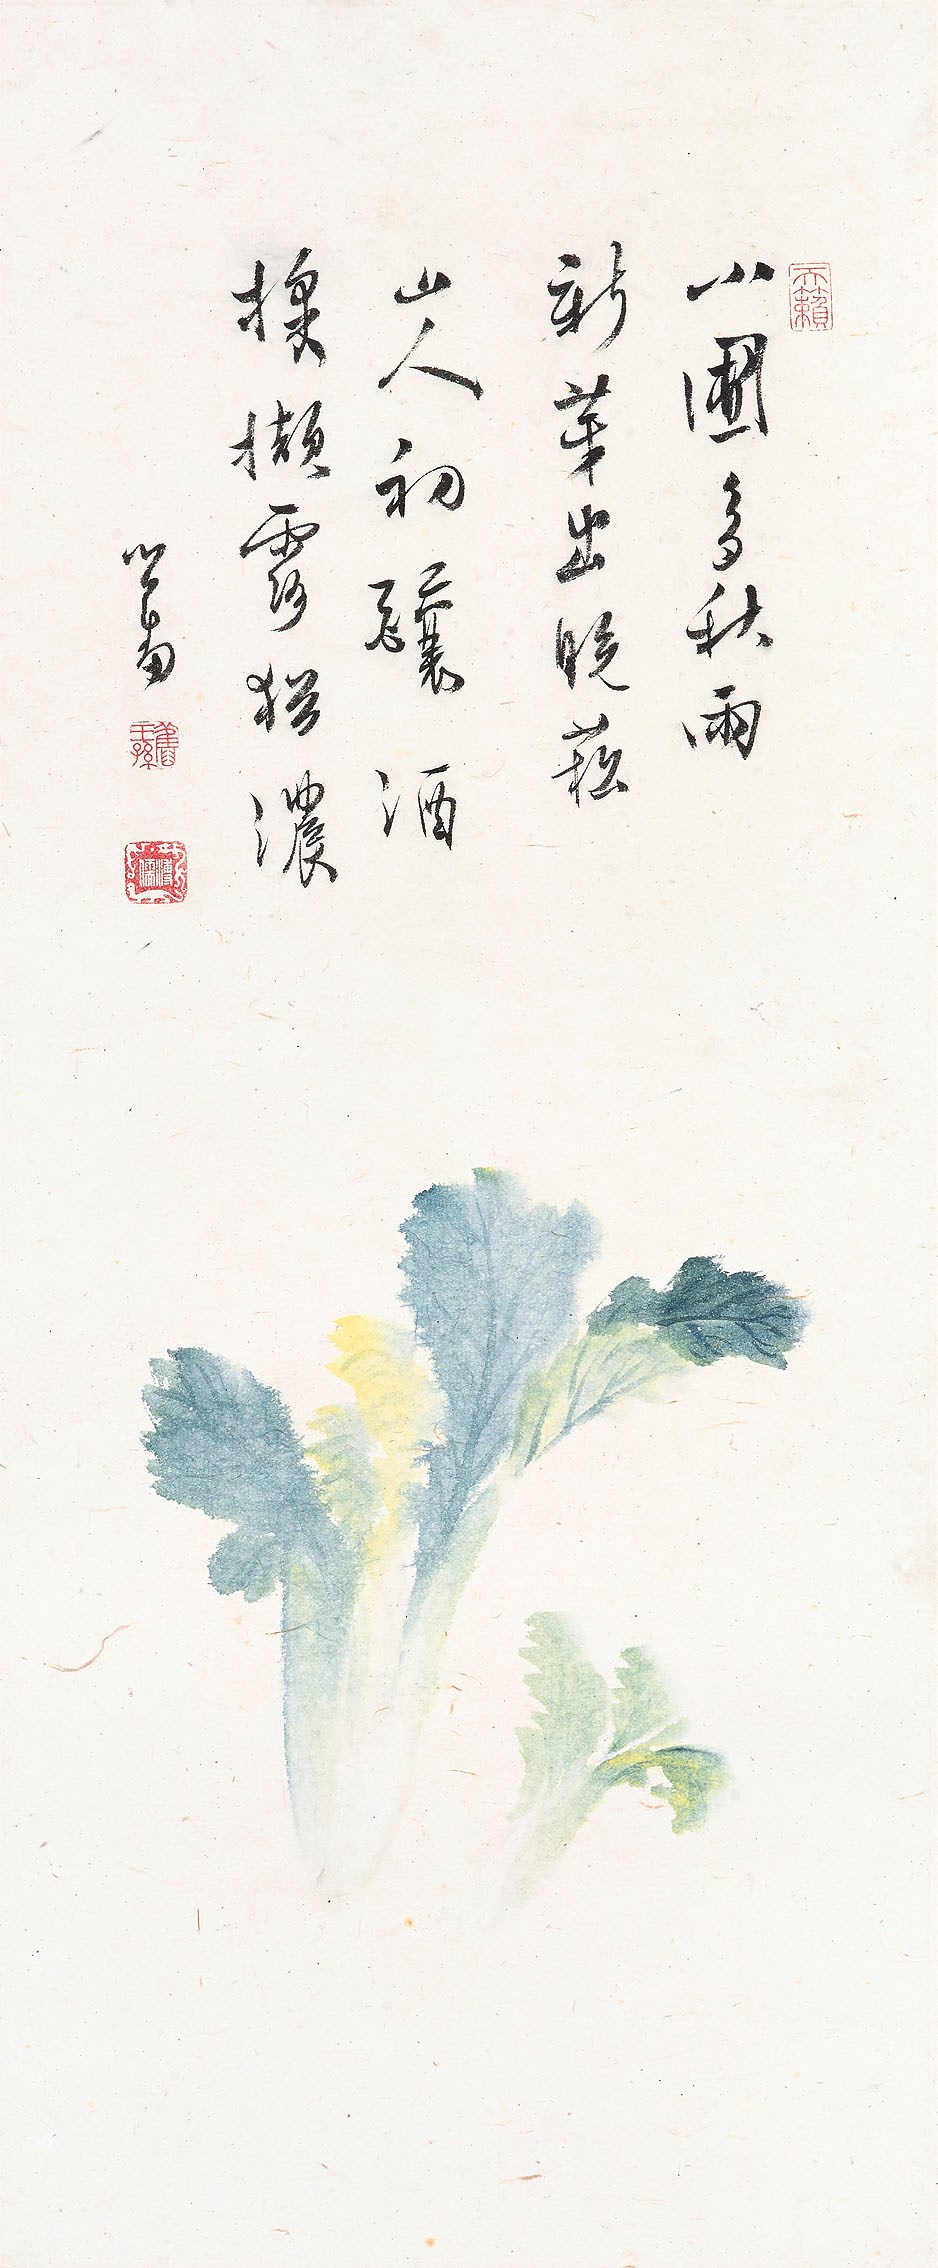 天籟
小圃多秋雨
新芽出晚菘
山人初釀酒
採擷露猶濃
心畬
舊王孫
溥儒